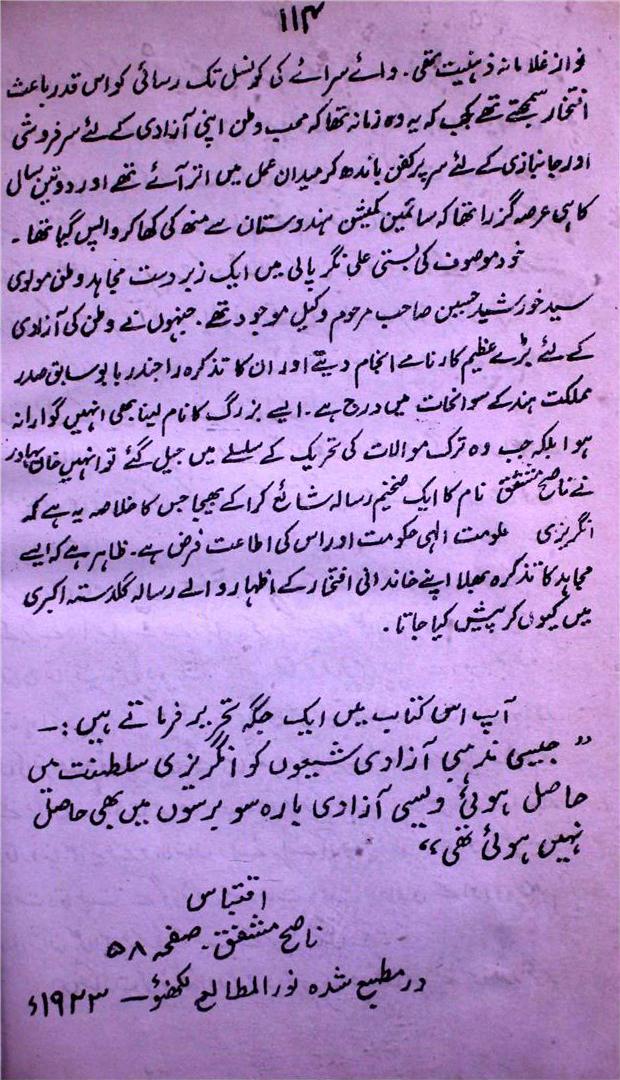 ۱۱۴
نواز غلامانہ ذہنیت تھی۔ وائسرائے کی کونسل تک رسائی کو اس قدر باعث
افتخار سمجھتے تھے جب کہ یہ وہ زمانہ تھا کہ محب وطن اپنی آزادی کے لئے سرفروشی
اور جانبازی کے لئے سر پر کفن باندھ کر میدان عمل میں اتر آئے تھے اور دو تین سال
کا ہی عرصہ گزرا تھا کہ سائمن کمیشن ہندوستان سے منھ کی کھا کر واپس گیا تھا۔
خود موصوف کی بستی علی نگر پالی میں ایک زبردست مجاہد وطن مولوی
سید خورشید حسین صاحب مرحوم وکیل موجود تھے۔ جنہوں نے وطن کی آزادی
کے لئے بڑے عظیم کارنامے انجام دیئے اور ان کا تذکرہ راجندر بابو سابق صدر
مملکت ہند کے سوانحات میں درج ہے۔ ایسے بزرگ کا نام لینا بھی انہیں گوارا نہ
ہوا بلکہ جب وہ ترک موالات کی تحریک کے سلسلے میں جیل گئے تو انہیں خان بہادر
نے ناصح مشفق نام کا ایک ضخیم رسالہ شائع کرا کے بھیجا جس کا خلاصہ یہ ہے کہ
انگریزی حکومت الہی حکومت اور اس کی اطاعت فرض ہے۔ ظاہر ہے کہ ایسے
مجاہد کا تذکرہ بھلا اپنے خاندانی افتخار کے اظہار والے رسالہ گلدستہ اکبری
میں کیوں کر پیش کیا جاتا۔
آپ اسی کتاب میں ایک جگہ تحریر فرماتے ہیں :۔
”جیسی مذہبی آزادی شیعوں کو انگریزی سلطنت میں
حاصل ہوئی ویسی آزادی بارہ سو برسوں میں بھی حاصل
نہیں ہوئی تھی“
اقتباس
ناصح مشفق۔ صفحہ ۵۸
در مطبع شدہ نورالمطالع لکھنؤ۔ ۱۹۲۳ء